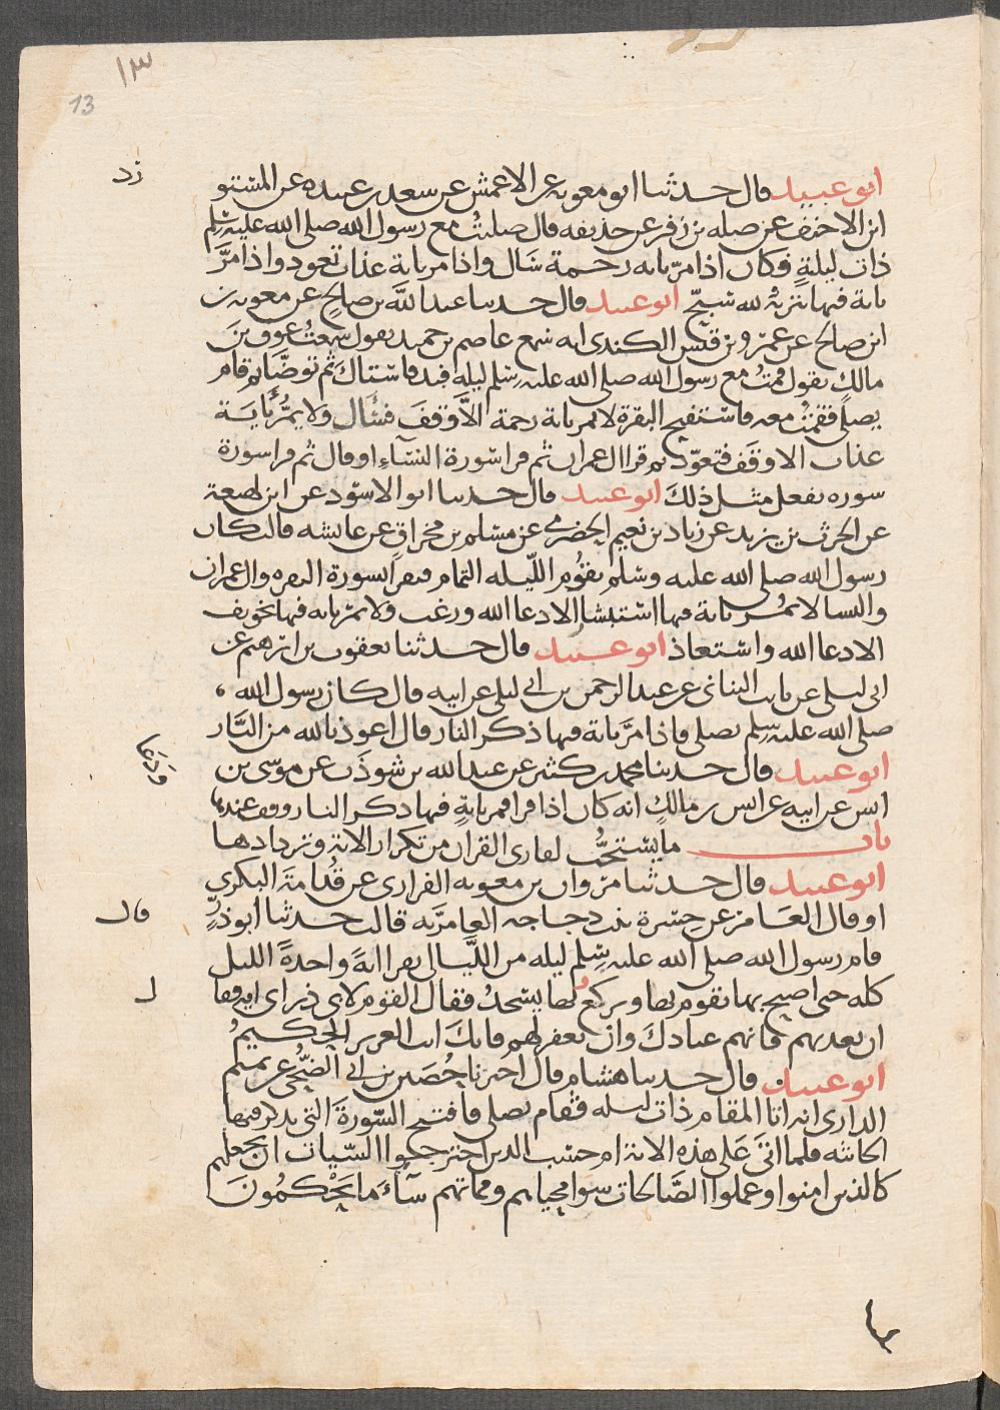 ١٣
13
ابو عبيد قال حدثنا ابو معويه عن الاعمش عن سعد بن عبيده عن المستو
رد
ابن الاحنف عن صله بن زفر عن حذيفه قال صليت مع رسول الله صلى الله عليه وسلم
ذات ليلةٍ فكان اذا مرّ بايه رحمة سَال واذا مر باية عذاب تعود واذا مرَّ
باية فيها تنزيهٌ لله سَبّح ابو عبيد قال حدثنا عبد الله بن صالحٍ عن معويه بن
ابن صالح عن عمرو بن قيس الكندى انه سمع عاصم بن حميد يقول سمعتُ عوف بنَ
مالكٍ يقول قمتُ مع رسول الله صلى الله عليه وسلم ليله فبدا فاستاكَ ثم توضَّا ثم قام
يصلى فقمتُ معه فاستفتح البقرة لا يمر باية رحمة الاَّ وقفَ فسَال ولا يمُرُّ بايَة
عذاب الا وقَف فتعوّذ ثم قرا ال عمران ثم قرا سورة النسَاءِ او قال ثم قرا سورة
سوره يفعل مثل ذلكَ ابو عبيد قال حدثنا ابو الاسوَد عن ابن لهيعة
عن الحرث بن يزيد عن زياد بن نعيم الحضرمي عن مسلم بن مخراقٍ عن عايشه قالت كان
رسول الله صلى الله عليه وسَلم يقوُم الليله التمام فيقرا بسورة البقره وال عمران
والنسا لا يمُر باية فيها استبشار الا دعا الله ورغب ولا يمرّ بايه فيها تخويف
الا دعا الله واستعاذ ابو عبيد قال حدثنا يعقوب بن ابرهيم عن
ابى ليلى عن ثابت البنانى عن عبد الرحمن بن ابى ليلى عن ابيه قال كان رسول الله
صلى الله عليه وسلم يصلى فاذا مرَّ باية فيها ذكر النار قال اعوذ بالله من النَّار
ابو عبيد قال حدثنا محمد بن كثير عن عبد الله بن شوذَب عن موسى بن
انس عن ابيه عن انس بن مالكٍ انه كان اذا قرا فمر بايةٍ فيها ذكر النار وقف عندها
وَدَعَا
باب ما يستحَبُّ لقارى القران من تكرار الاية وتردادها
ابو عبيد قال حدثنا مَروان بن معويه الفزارى عن قُدامةَ البكرى
او قال العَامرىّ عن جسرة بنت دجاجه العامريَّه قالت حدثنا ابو ذرٍّ
قال
قام رسول الله صلى الله عليه وسلم ليله من الليَّالى يقرا ايةً واحدةً الليل
كله حتى اصبح بها يقوم وبها يركعُ وبها يسجدُ فقال القوم لابى ذر اى ايه فقا
ل
ان تعذبهم فانهم عبادكَ وان تغفر لهم فانكَ انت العزيز الحكيمُ
ابو عبيد قال حدثنا هشام قال اخبرنا حُصَين بن ابى الضحّى عن تميم
الدارى انه اتا المقام ذات ليله فقام يصلى فافتتح السّورةَ التى يذكر فيها
الجاثيه فلما اتىَ عَلى هذه الاية ام حسب الذين اجترحوا السّيات ان نجعلهم
كالذين امنوا وعملوا الصَّالحات سوا محياهم ومماتهم سآءَ ما يَحْكمُونَ